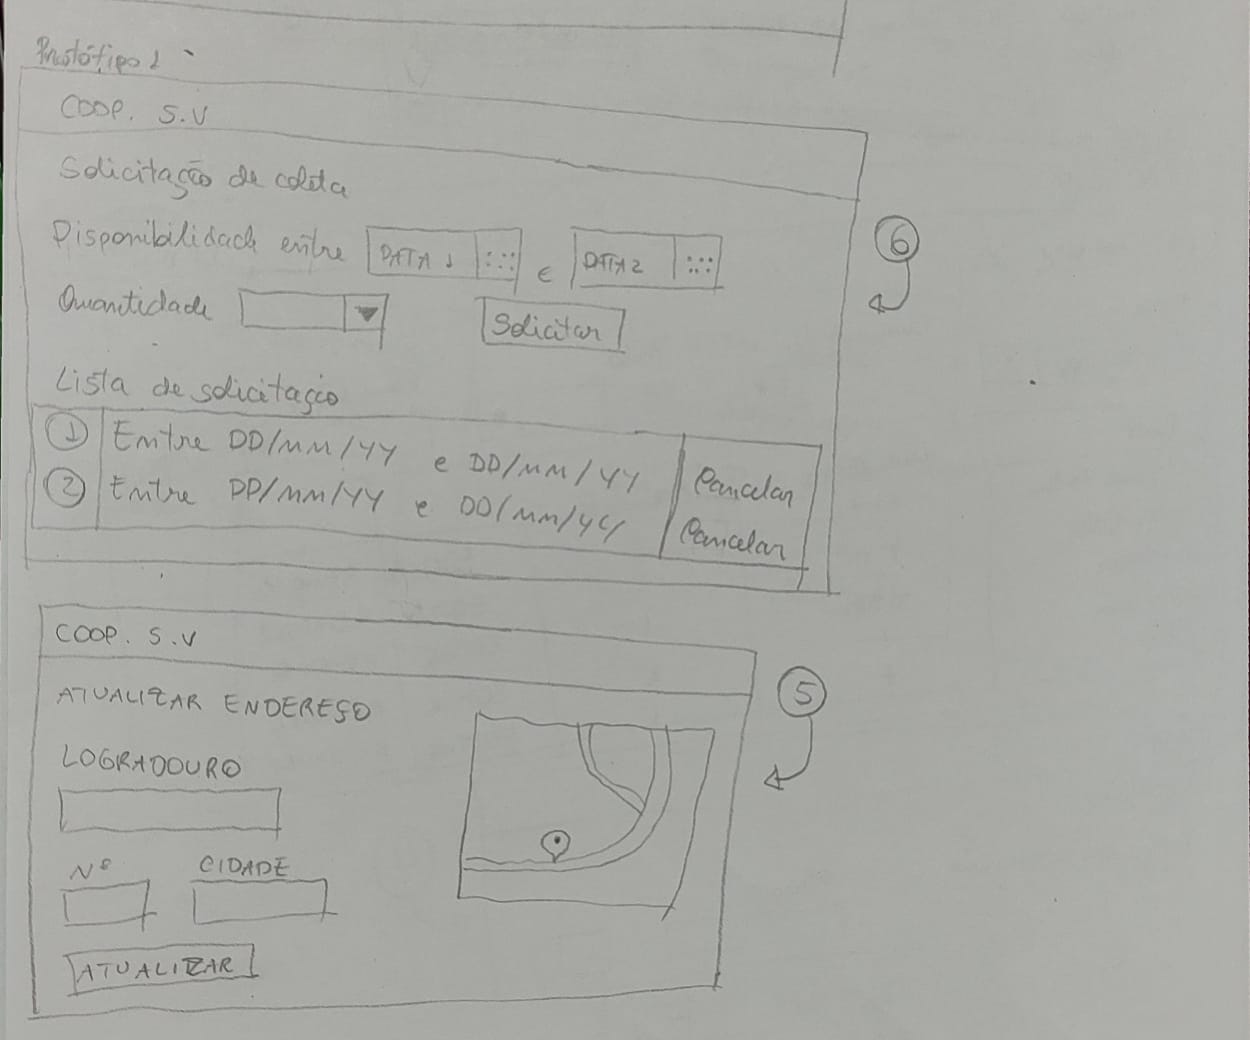 Protótipo 1
COOP. S.V
Solicitação de coleta
Disponibilidade entre DATA 1 e DATA 2
Quantidade Solicitar
Lista de solicitação
1 Entre DD/MM/YY e DD/MM/YY Cancelar
2 Entre DD/MM/YY e DD/MM/YY Cancelar
6
COOP. S.V
ATUALIZAR ENDEREÇO
LOGRADOURO
Nº CIDADE
ATUALIZAR
5